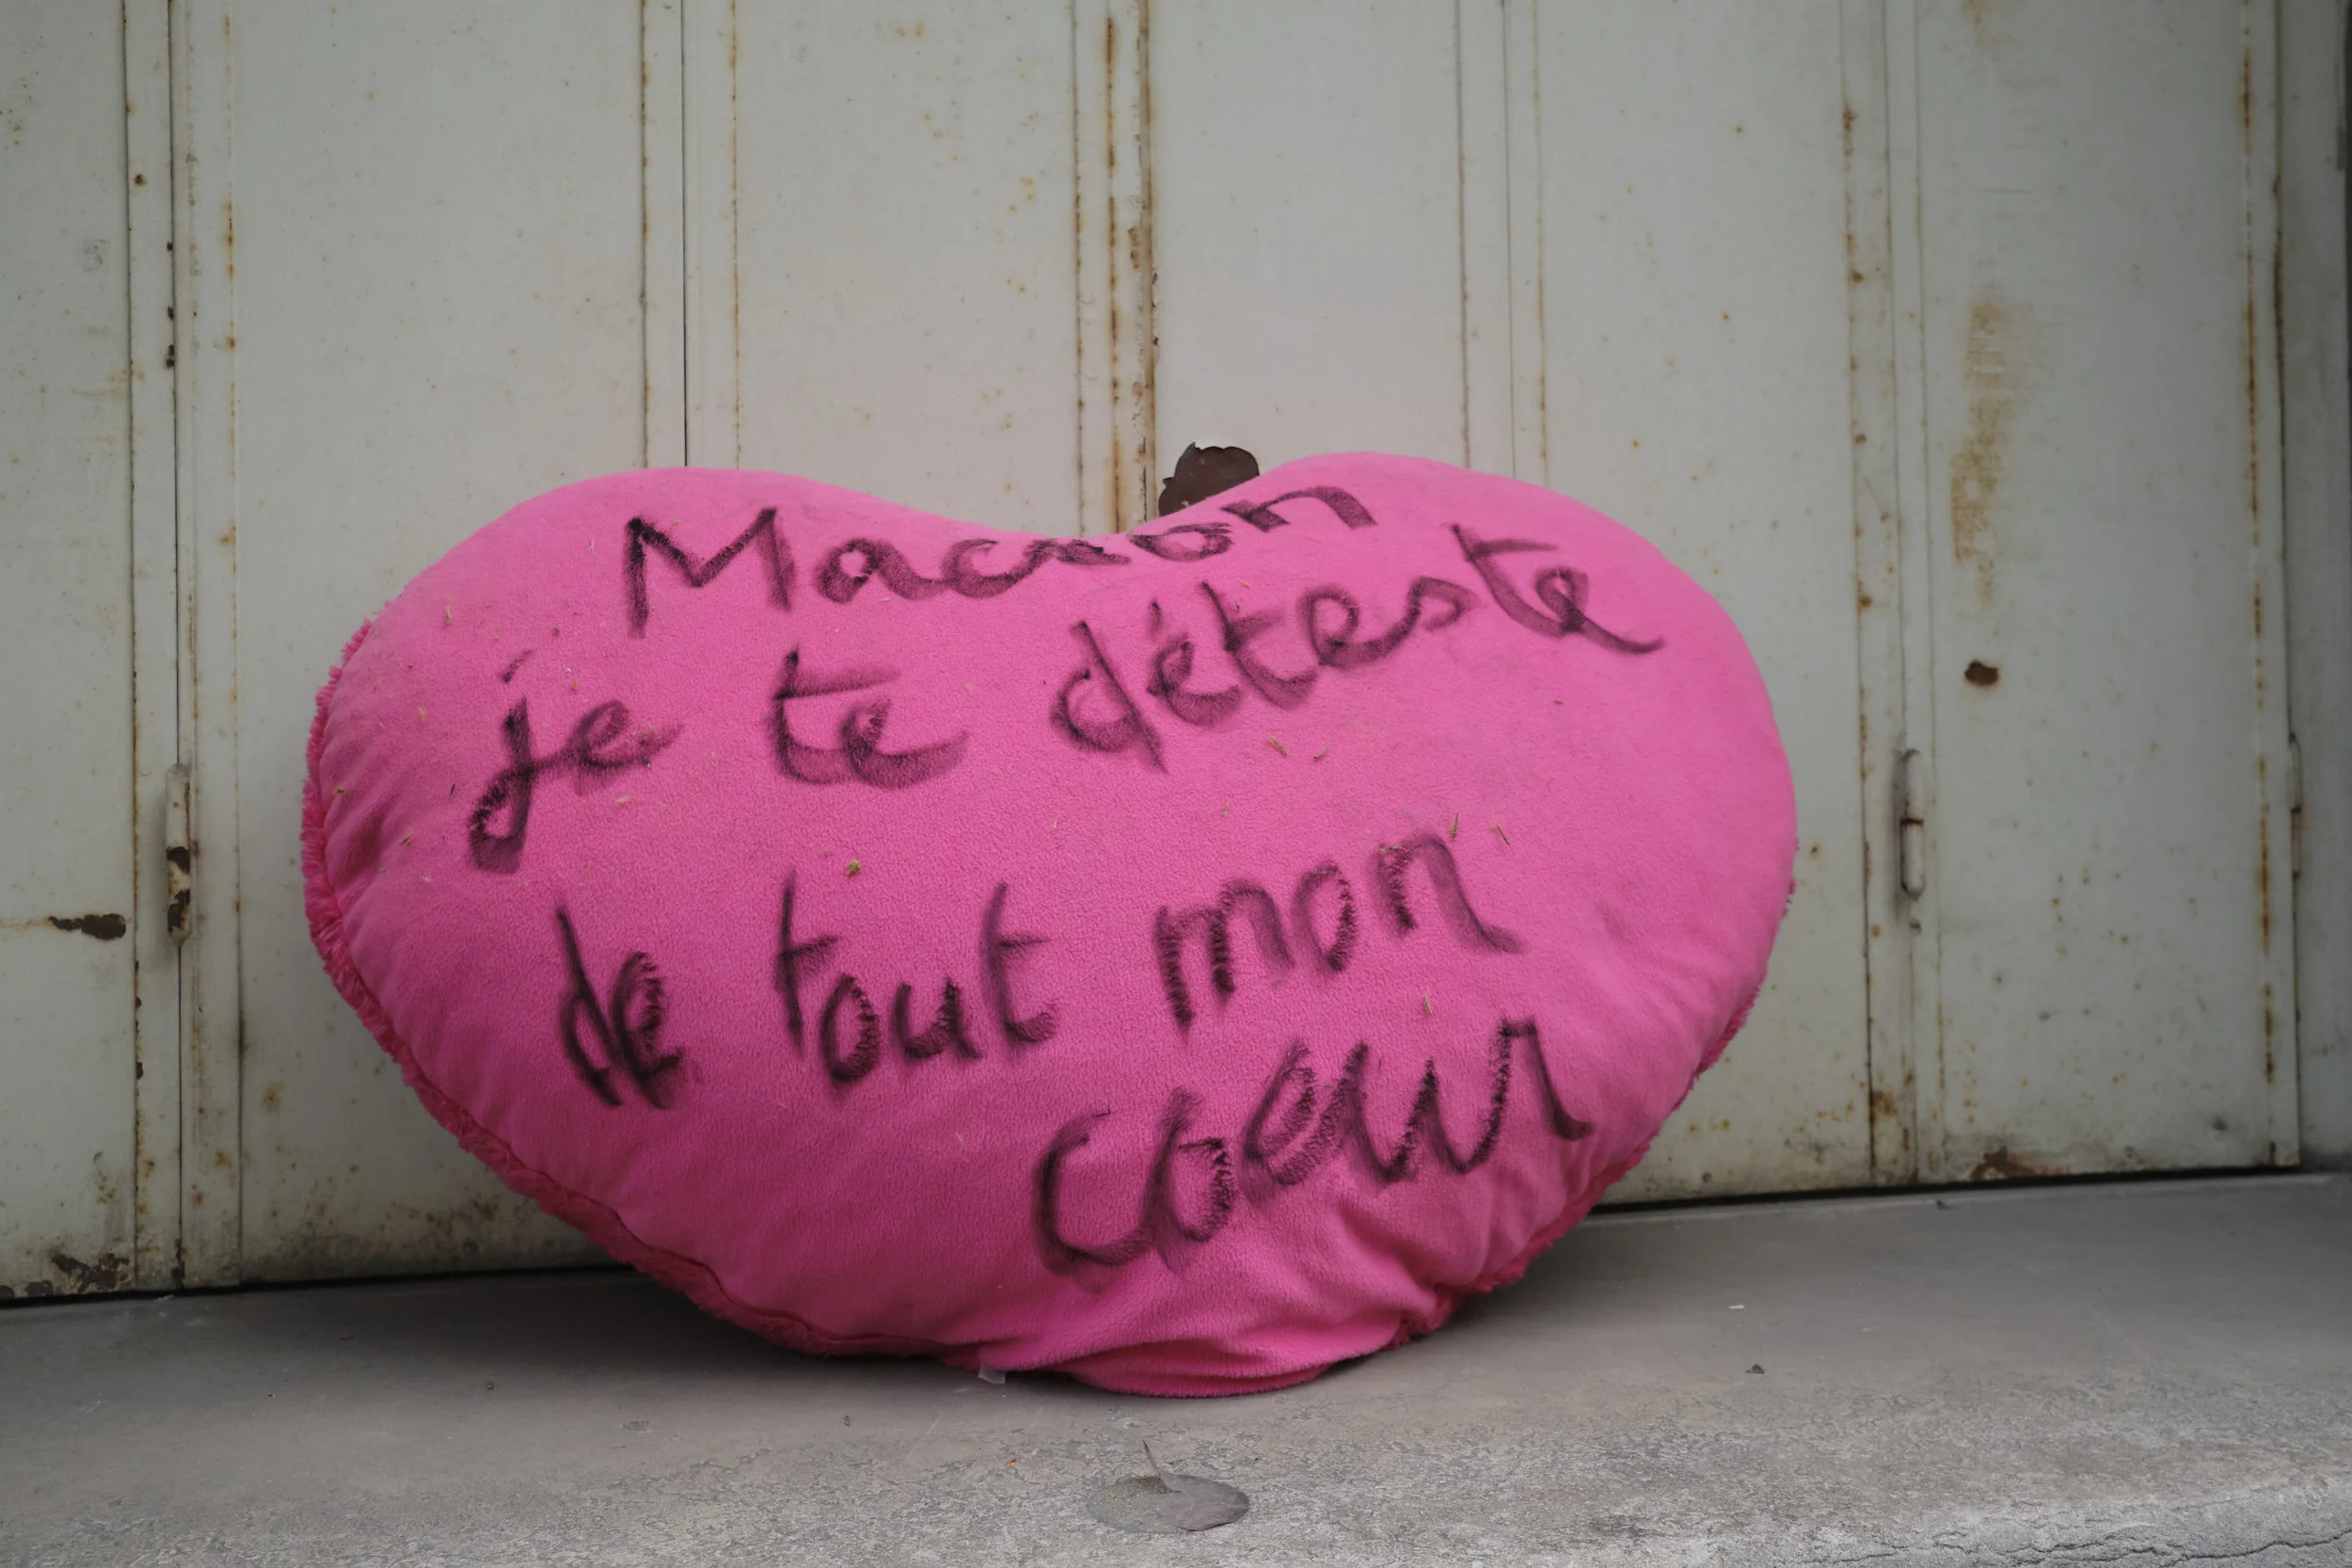 Macron
je te déteste
de tout mon
coeur